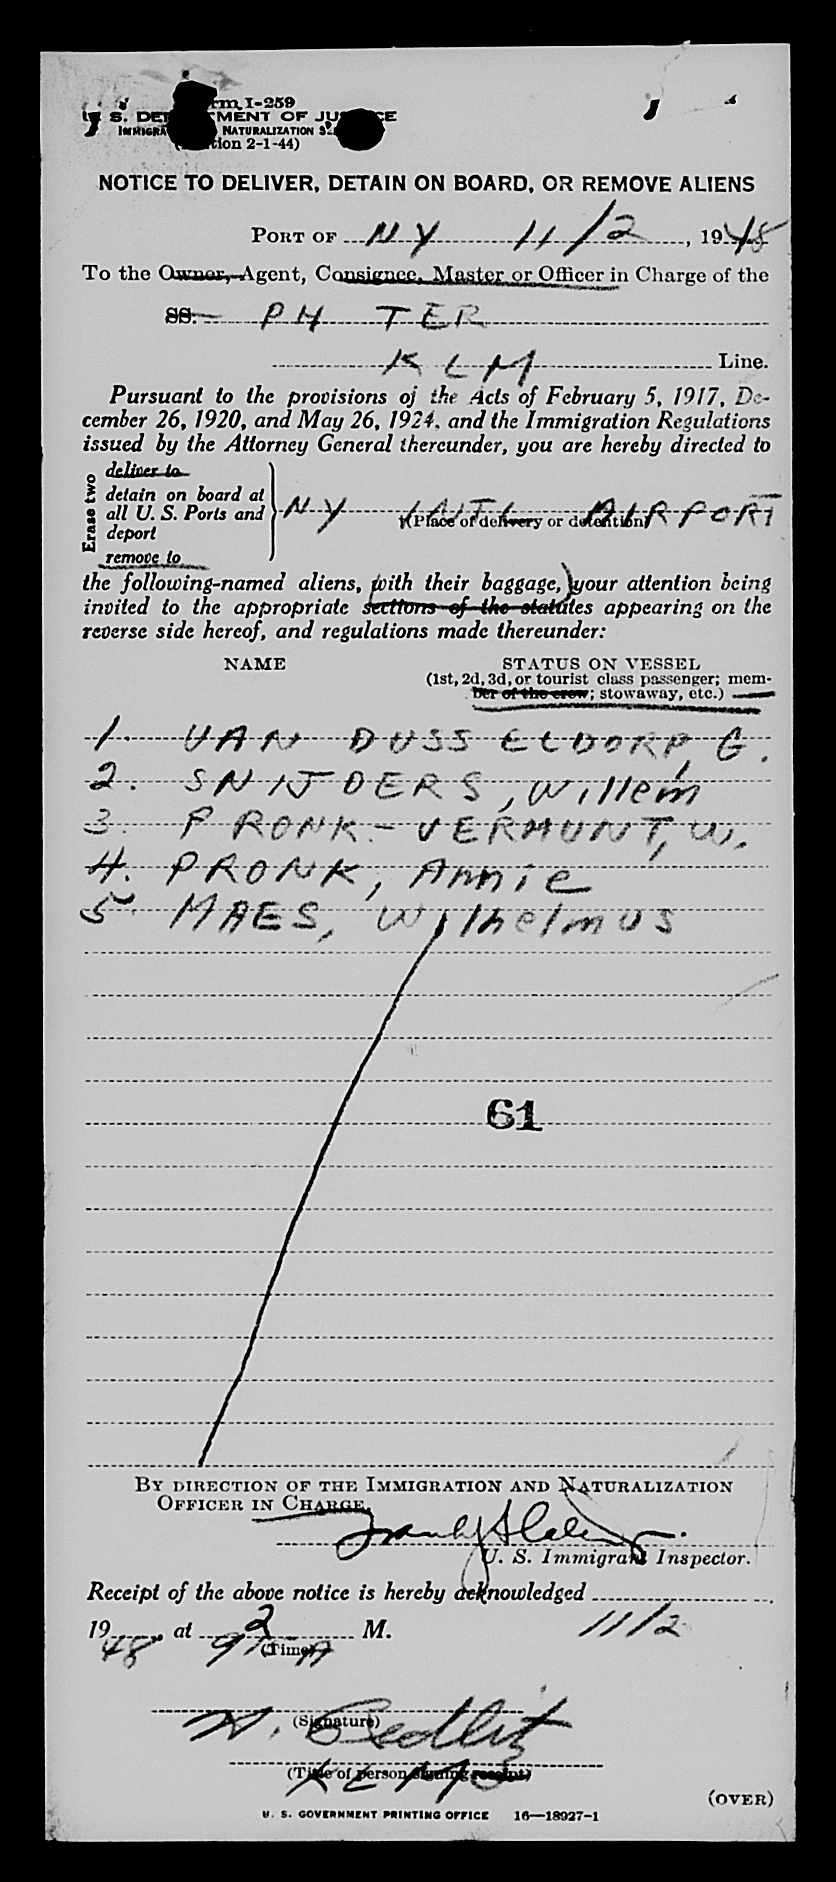 Form I-259
U. S. DEPARTMENT OF JUSTICE
IMMIGRATION NATURALIZATION
(Edition 2-1-44)
NOTICE TO DELIVER, DETAIN ON BOARD, OR REMOVE ALIENS
PORT OF NY 11/2, 1948
To the Owner, Agent, Consignee, Master or Officer in Charge of the
SS. PH TER
KLM Line.
Pursuant to the provisions of the Acts of February 5, 1917, De-
cember 26, 1920, and May 26, 1924, and the Immigration Regulations
issued by the Attorney General thereunder, you are hereby directed to
Erase two
deliver to
detain on board at
all U. S. Ports and
deport
remove to
NY INTL AIRPORT
(Place of delivery or detention)
the following-named aliens, (with their baggage,) your attention being
invited to the appropriate sections of the statutes appearing on the
reverse side hereof, and regulations made thereunder:
NAME STATUS ON VESSEL
(1st, 2d, 3d, or tourist class passenger; mem-
ber of the crew; stowaway, etc.)
1. VAN DUSSELDORP, G.
2. SNIJDERS, Willem
3. PRONK-VERMUNT, W.
4. PRONK, Annie
5. MAES, Wilhelmus
61
BY DIRECTION OF THE IMMIGRATION AND NATURALIZATION
OFFICER IN CHARGE.
U. S. Immigrant Inspector.
Receipt of the above notice is hereby acknowledged
11/2
1948, at M.
(Time)
(Signature)
(Title of person signing receipt)
(OVER)
U. S. GOVERNMENT PRINTING OFFICE 16—18927-1